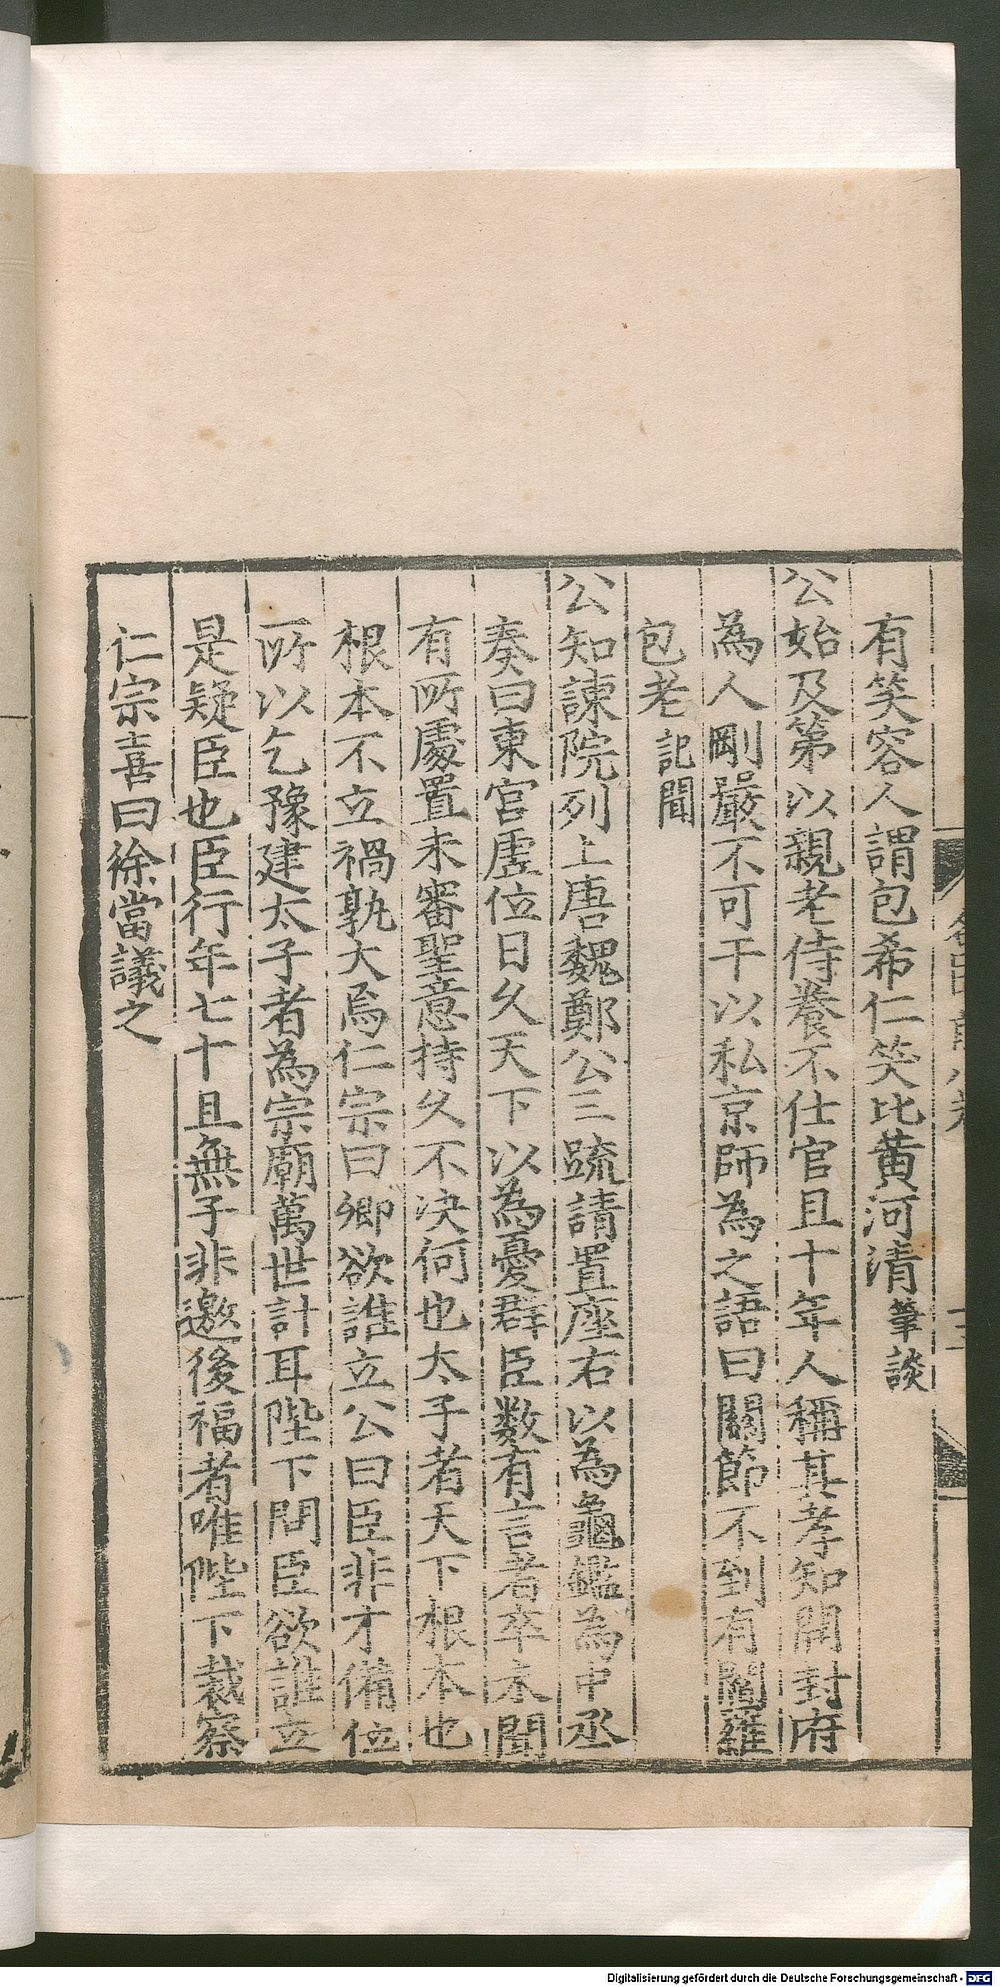 有笑容人謂包希仁笑比黄河清筆談
公始及第以親老侍養不仕官且十年人稱其孝知開封府
為人剛嚴不可干以私京師為之語曰關節不到有閻羅
包老記聞
公知諫院列上唐魏鄭公三䟽請置座右以為龜鑑為中丞
奏曰東宮虚位日久天下以為憂群臣数有言者卒未聞
有所處置未審聖意持久不决何也太子者天下根本也
根本不立禍孰大焉仁宗曰卿欲誰立公曰臣非才備位
所以乞豫建太子者為宗廟萬世計耳陛下問臣欲誰立
是疑臣也臣行年七十且無子非邀後福者唯陛下裁察
仁宗喜曰徐當議之
Digitalisierung gefördert durch die Deutsche Forschungsgemeinschaft - DFG